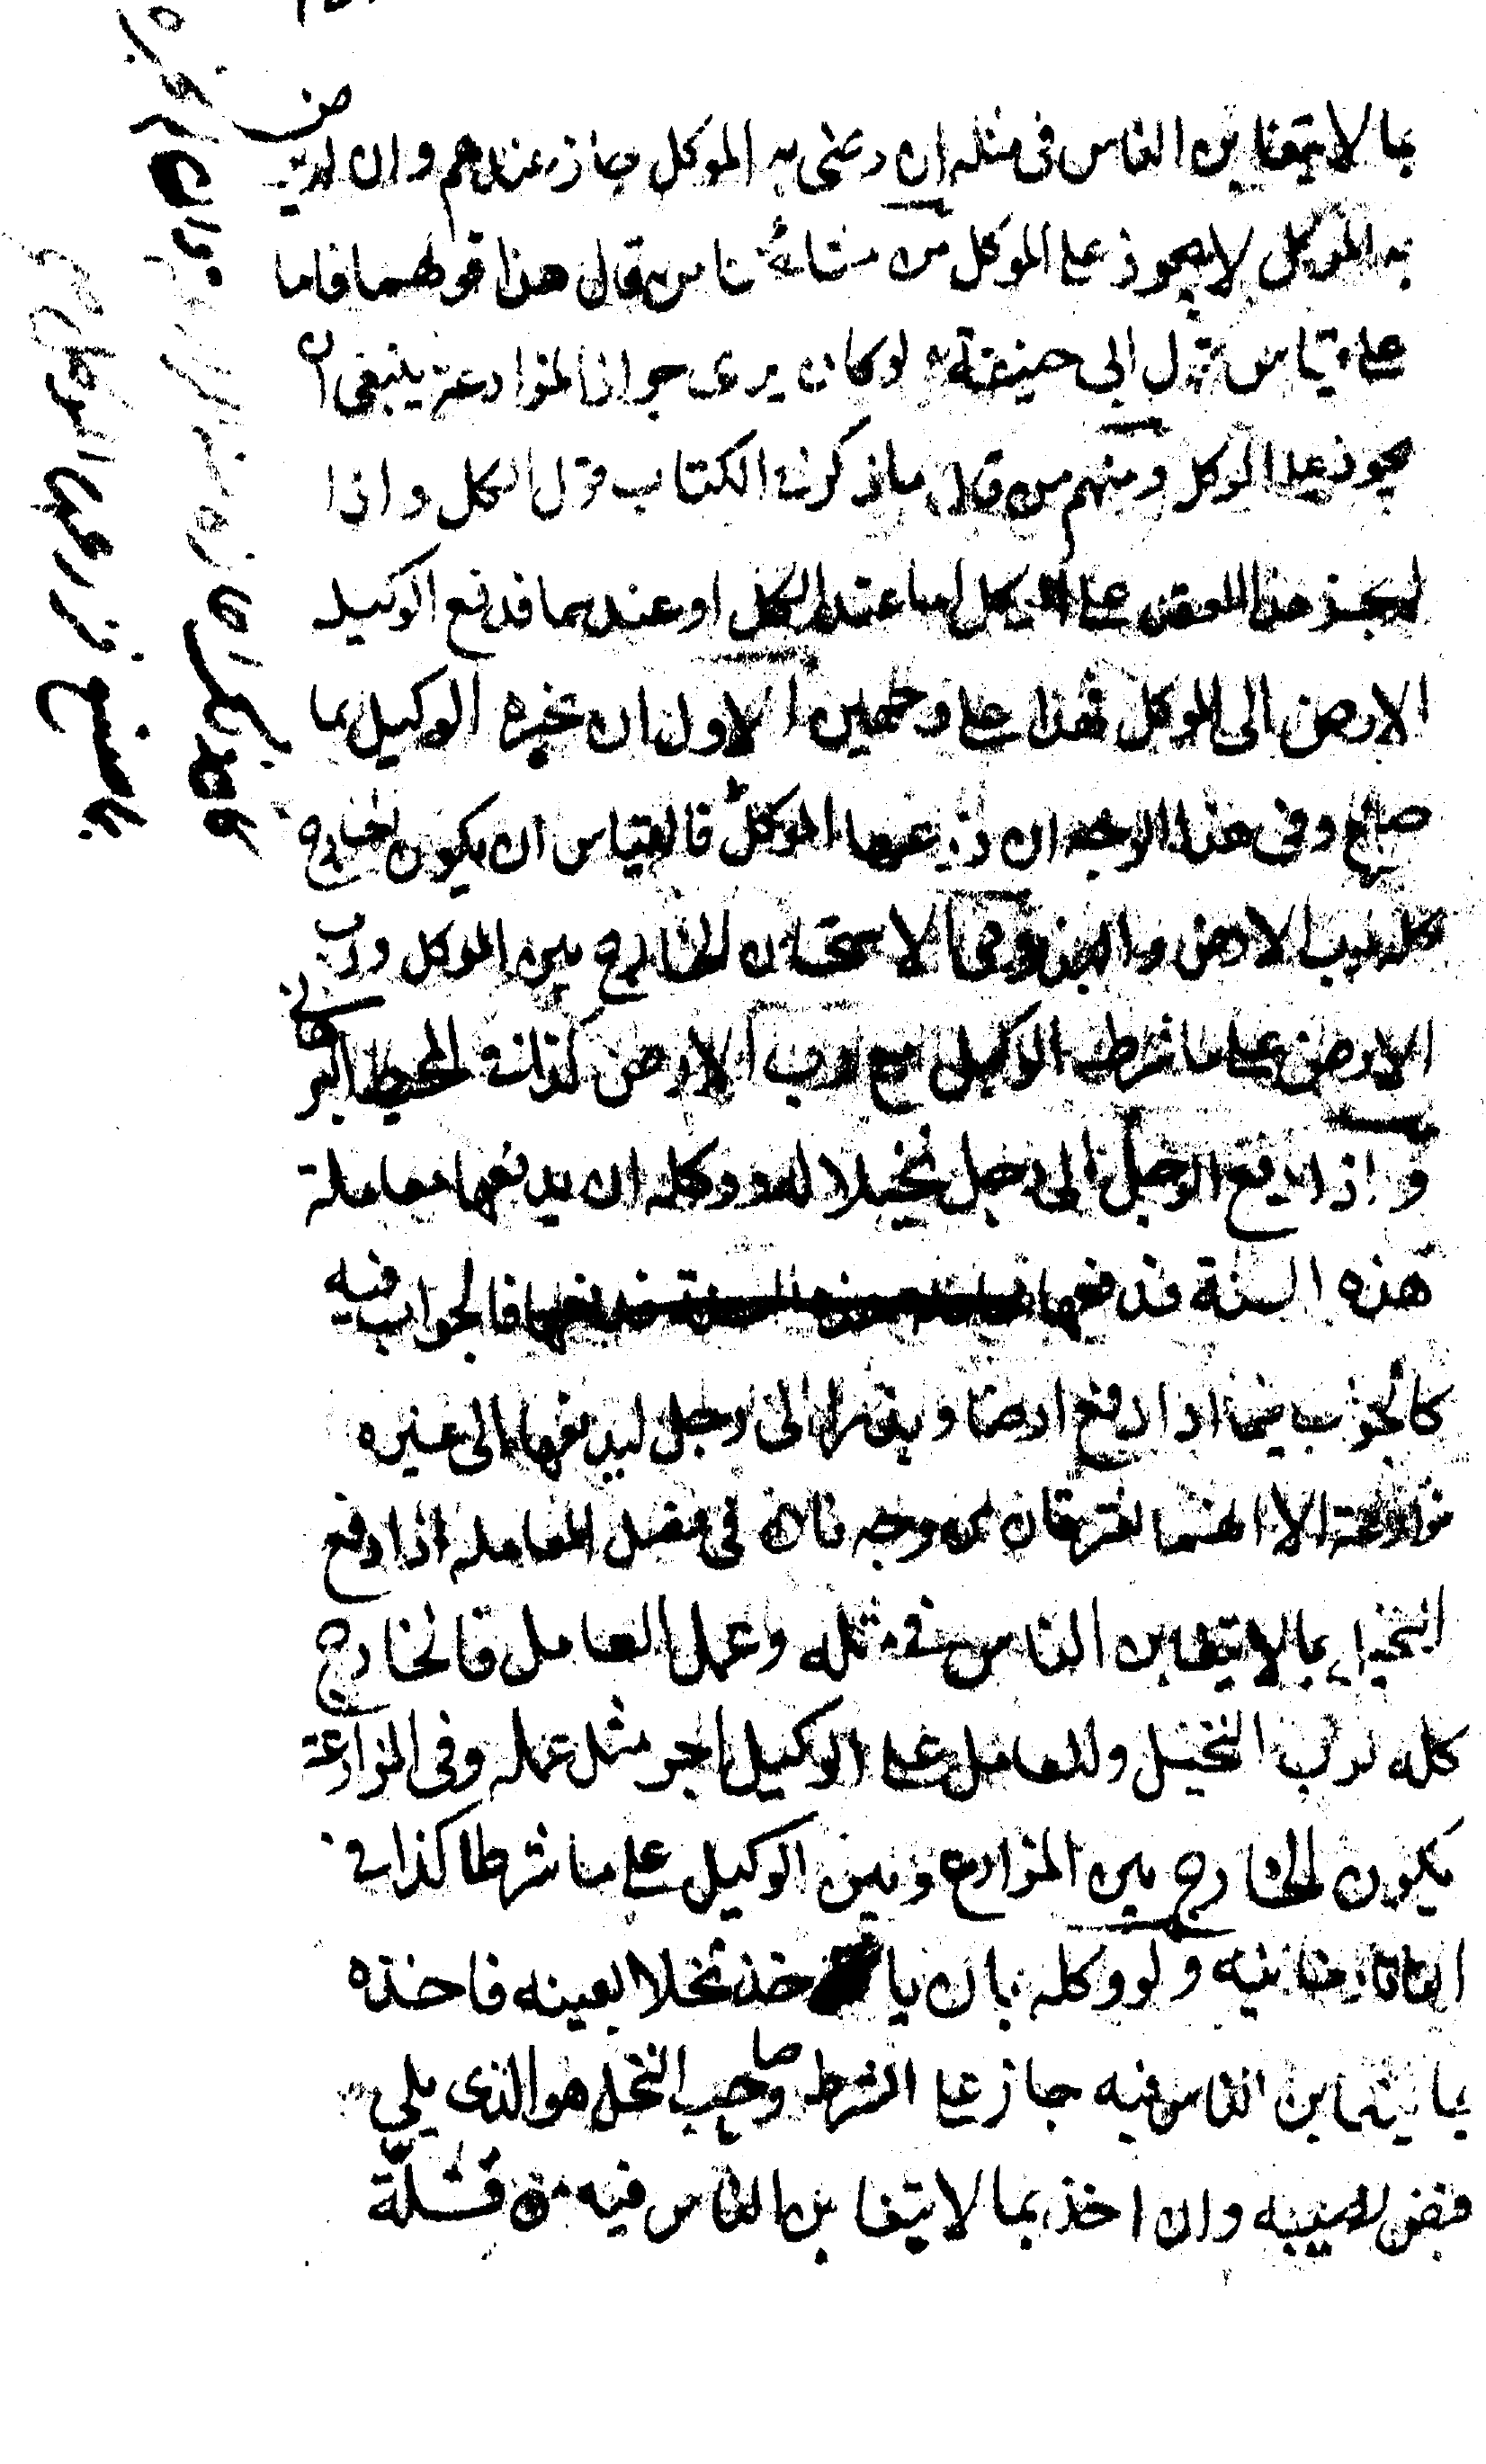 بما لا يتغابن الناس فى مثله ان رضى به الموكل جاز عندهم وان لم يرض
به الموكل لا يجوز على الموكل من مشائخنا من قال هذا قولهما فاما
على قياس قول ابى حنيفة لو كان يرى جواز المزارعة ينبغى ان
يجوز على الموكل ومنهم من قال ما ذكر فى الكتاب قول الكل واذا
لم يجز هذا العقد على الموكل اما عند الكل او عندهما فدفع الوكيل
الارض الى الموكل فهذا على وجهين الاول ان يخبره الوكيل بما
صنع وفى هذا الوجه ان زرعها الموكل فالقياس ان يكون الخارج
كله لرب الارض والبذر وفى الاستحسان الخارج بين الموكل ورب
الارض على ما شرط الوكيل مع رب الارض كذا فى المحيط البرهانى
واذا دفع الرجل الى رجل نخيلا له ووكله ان يدفعها معاملة
هذه السنة فدفعها فالجواب فيه
كالجواب فيما اذا دفع ارضا وبذرا الى رجل ليدفعها الى غيره
مزارعة الا انهما يفترقان من وجه فان فى فصل المعاملة اذا دفع
النخيل بما لا يتغابن الناس فى مثله وعمل العامل فالخارج
كله لرب النخيل وللعامل على الوكيل اجر مثل عمله وفى المزارعة
يكون الخارج بين المزارع وبين الوكيل على ما شرطا كذا فى
التاتارخانيه ولو وكله بان ياخذ نخلا بعينه فاخذه
بما يتغابن الناس فيه جاز على الشرط وصاحب النخل هو الذى يلى
قبض نصيبه وان اخذ بما لا يتغابن الناس فيه من قلة